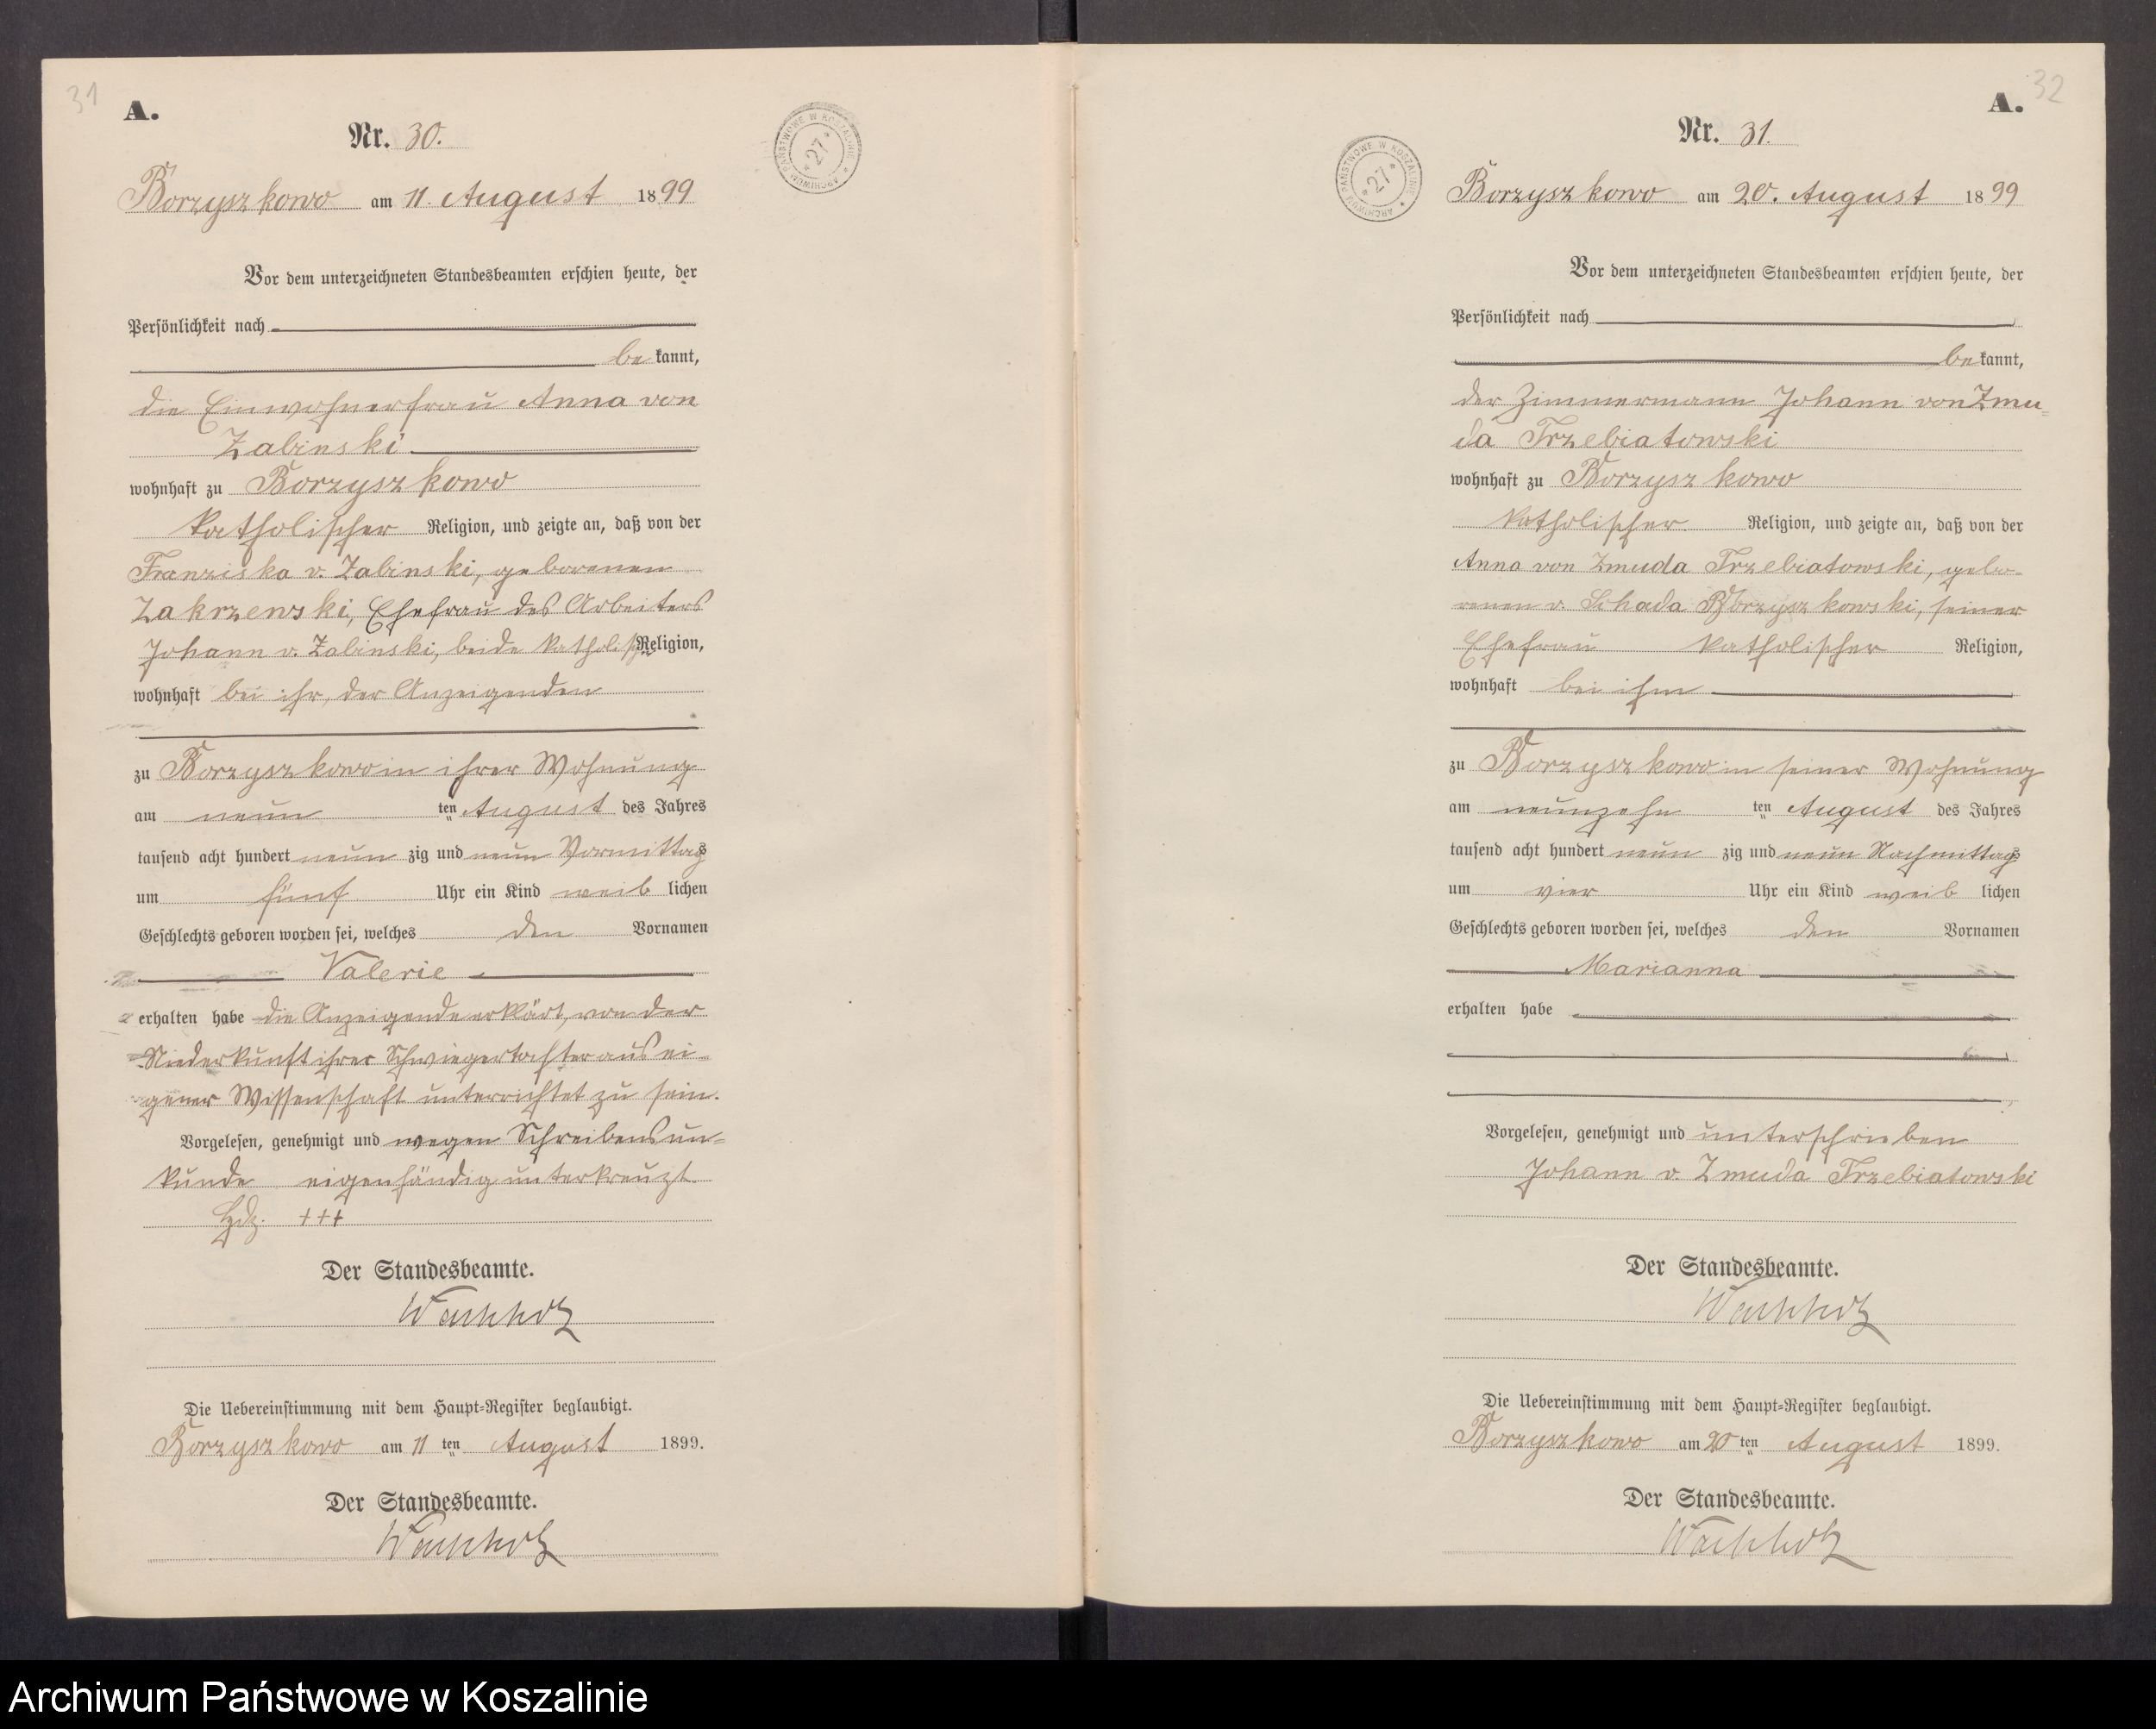 31
A.
Nr. 30.
ARCHIWUM PAŃSTWOWE W KOSZALINIE * 27 *
Borzyszkowo am 11. August 1899
Vor dem unterzeichneten Standesbeamten erschien heute, der
Persönlichkeit nach
be kannt,
die Einwohnerfrau Anna von
Zabinski
wohnhaft zu Borzyszkowo
katholischer Religion, und zeigte an, daß von der
Franziska v. Zabinski, geborenen
Zakrzewski, Ehefrau des Arbeiters
Johann v. Zabinski, beide katholisch Religion,
wohnhaft bei ihr, der Anzeigenden
zu Borzyszkowo in ihrer Wohnung
am neun ten August des Jahres
tausend acht hundert neun zig und neun Vormittags
um fünf Uhr ein Kind weib lichen
Geschlechts geboren worden sei, welches den Vornamen
Valerie
erhalten habe die Anzeigende erklärt, von der
Niederkunft ihrer Schwiegertochter aus ei-
gener Wissenschaft unterrichtet zu sein.
Vorgelesen, genehmigt und wegen Schreibensun-
kunde eigenhändig unterkreuzt
Hdz. +++
Der Standesbeamte.
Wachholz
Die Uebereinstimmung mit dem Haupt-Register beglaubigt.
Borzyszkowo am 11 ten August 1899.
Der Standesbeamte.
Wachholz
32
A.
Nr. 31.
ARCHIWUM PAŃSTWOWE W KOSZALINIE * 27 *
Borzyszkowo am 20. August 1899
Vor dem unterzeichneten Standesbeamten erschien heute, der
Persönlichkeit nach
be kannt,
der Zimmermann Johann von Zmu-
da Trzebiatowski
wohnhaft zu Borzyszkowo
katholischer Religion, und zeigte an, daß von der
Anna von Zmuda Trzebiatowski, gebo-
renen v. Schada Borzyszkowski, seiner
Ehefrau katholischer Religion,
wohnhaft bei ihm
zu Borzyszkowo in seiner Wohnung
am neunzehn ten August des Jahres
tausend acht hundert neun zig und neun Nachmittags
um vier Uhr ein Kind weib lichen
Geschlechts geboren worden sei, welches den Vornamen
Marianna
erhalten habe
Vorgelesen, genehmigt und unterschrieben
Johann v. Zmuda Trzebiatowski
Der Standesbeamte.
Wachholz
Die Uebereinstimmung mit dem Haupt-Register beglaubigt.
Borzyszkowo am 20 ten August 1899.
Der Standesbeamte.
Wachholz
Archiwum Państwowe w Koszalinie